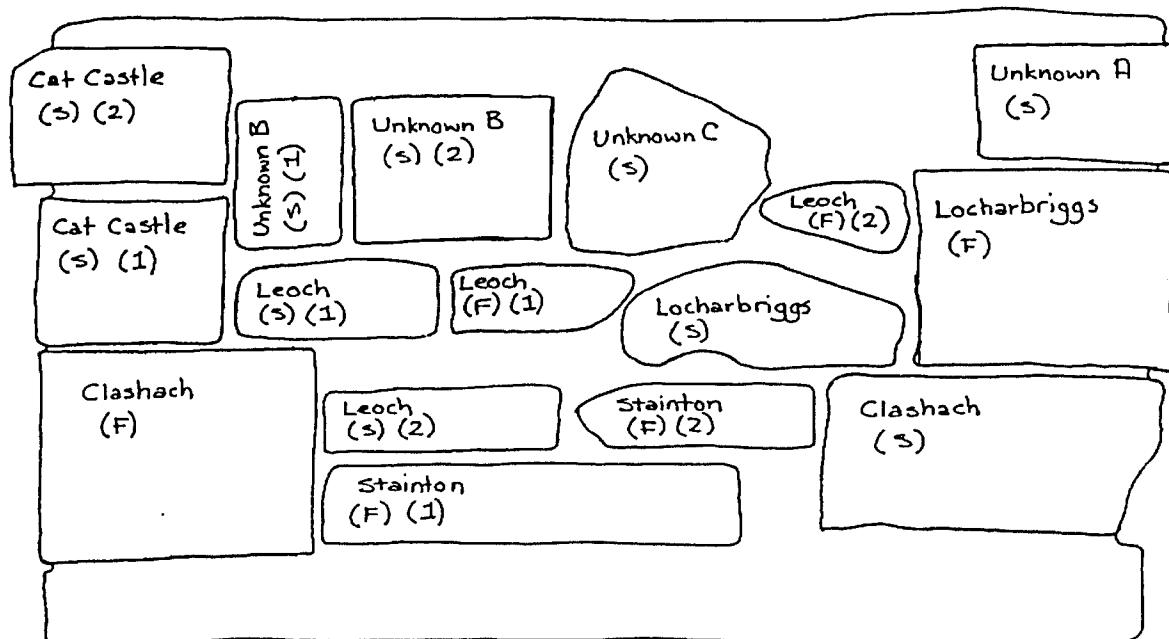 Cat Castle
(S) (2)
Unknown B
(S) (1)
Unknown B
(S) (2)
Unknown C
(S)
Unknown A
(S)
Leoch
(F) (2)
Locharbriggs
(F)
Cat Castle
(S) (1)
Leoch
(S) (1)
Leoch
(F) (1)
Locharbriggs
(S)
Clashach
(F)
Leoch
(S) (2)
Stainton
(F) (2)
Clashach
(S)
Stainton
(F) (1)